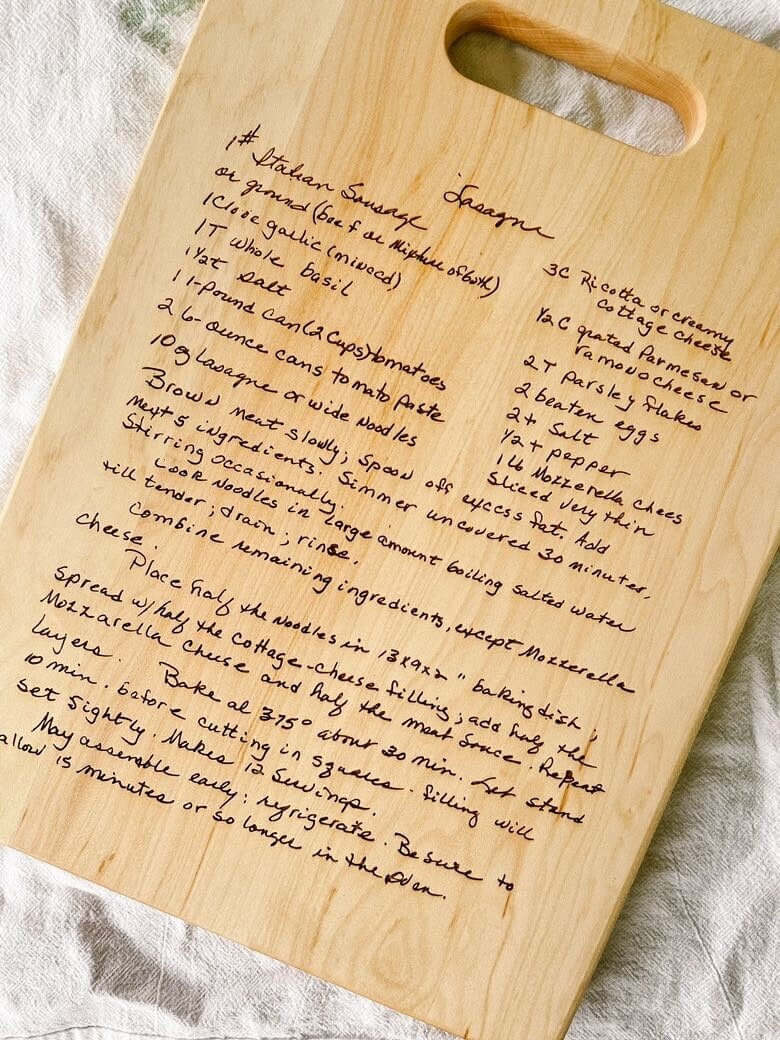 Lasagne
1# Italian Sausage
or ground (beef or Mixture of both)
1 Clove garlic (minced)
1T whole basil
1½t salt
1 1-pound can (2 cups) tomatoes
2 6-ounce cans tomato paste
10 oz lasagne or wide noodles
3C Ricotta or creamy
cottage cheese
½ C grated Parmesan or
ramono cheese
2 T Parsley flakes
2 beaten eggs
2t Salt
½ t pepper
1 lb Mozzerella chees
sliced very thin
Brown meat slowly; spoon off excess fat. Add
next 5 ingredients. Simmer uncovered 30 minutes,
Stirring occasionally.
Cook Noodles in large amount boiling salted water
till tender; drain; rinse.
Combine remaining ingredients, except Mozzerella
cheese.
Place half the noodles in 13x9x2" baking dish;
Spread w/half the cottage-cheese filling; add half the
Mozzarella cheese and half the meat sauce. Repeat
layers. Bake at 375° about 30 min. Let stand
10 min. before cutting in squares. filling will
set slightly. Makes 12 servings.
May assemble early; refrigerate. Be sure to
allow 15 minutes or so longer in the oven.